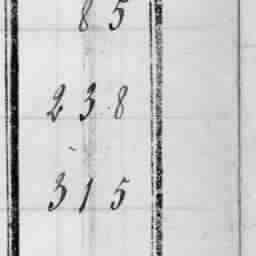 85
238
315